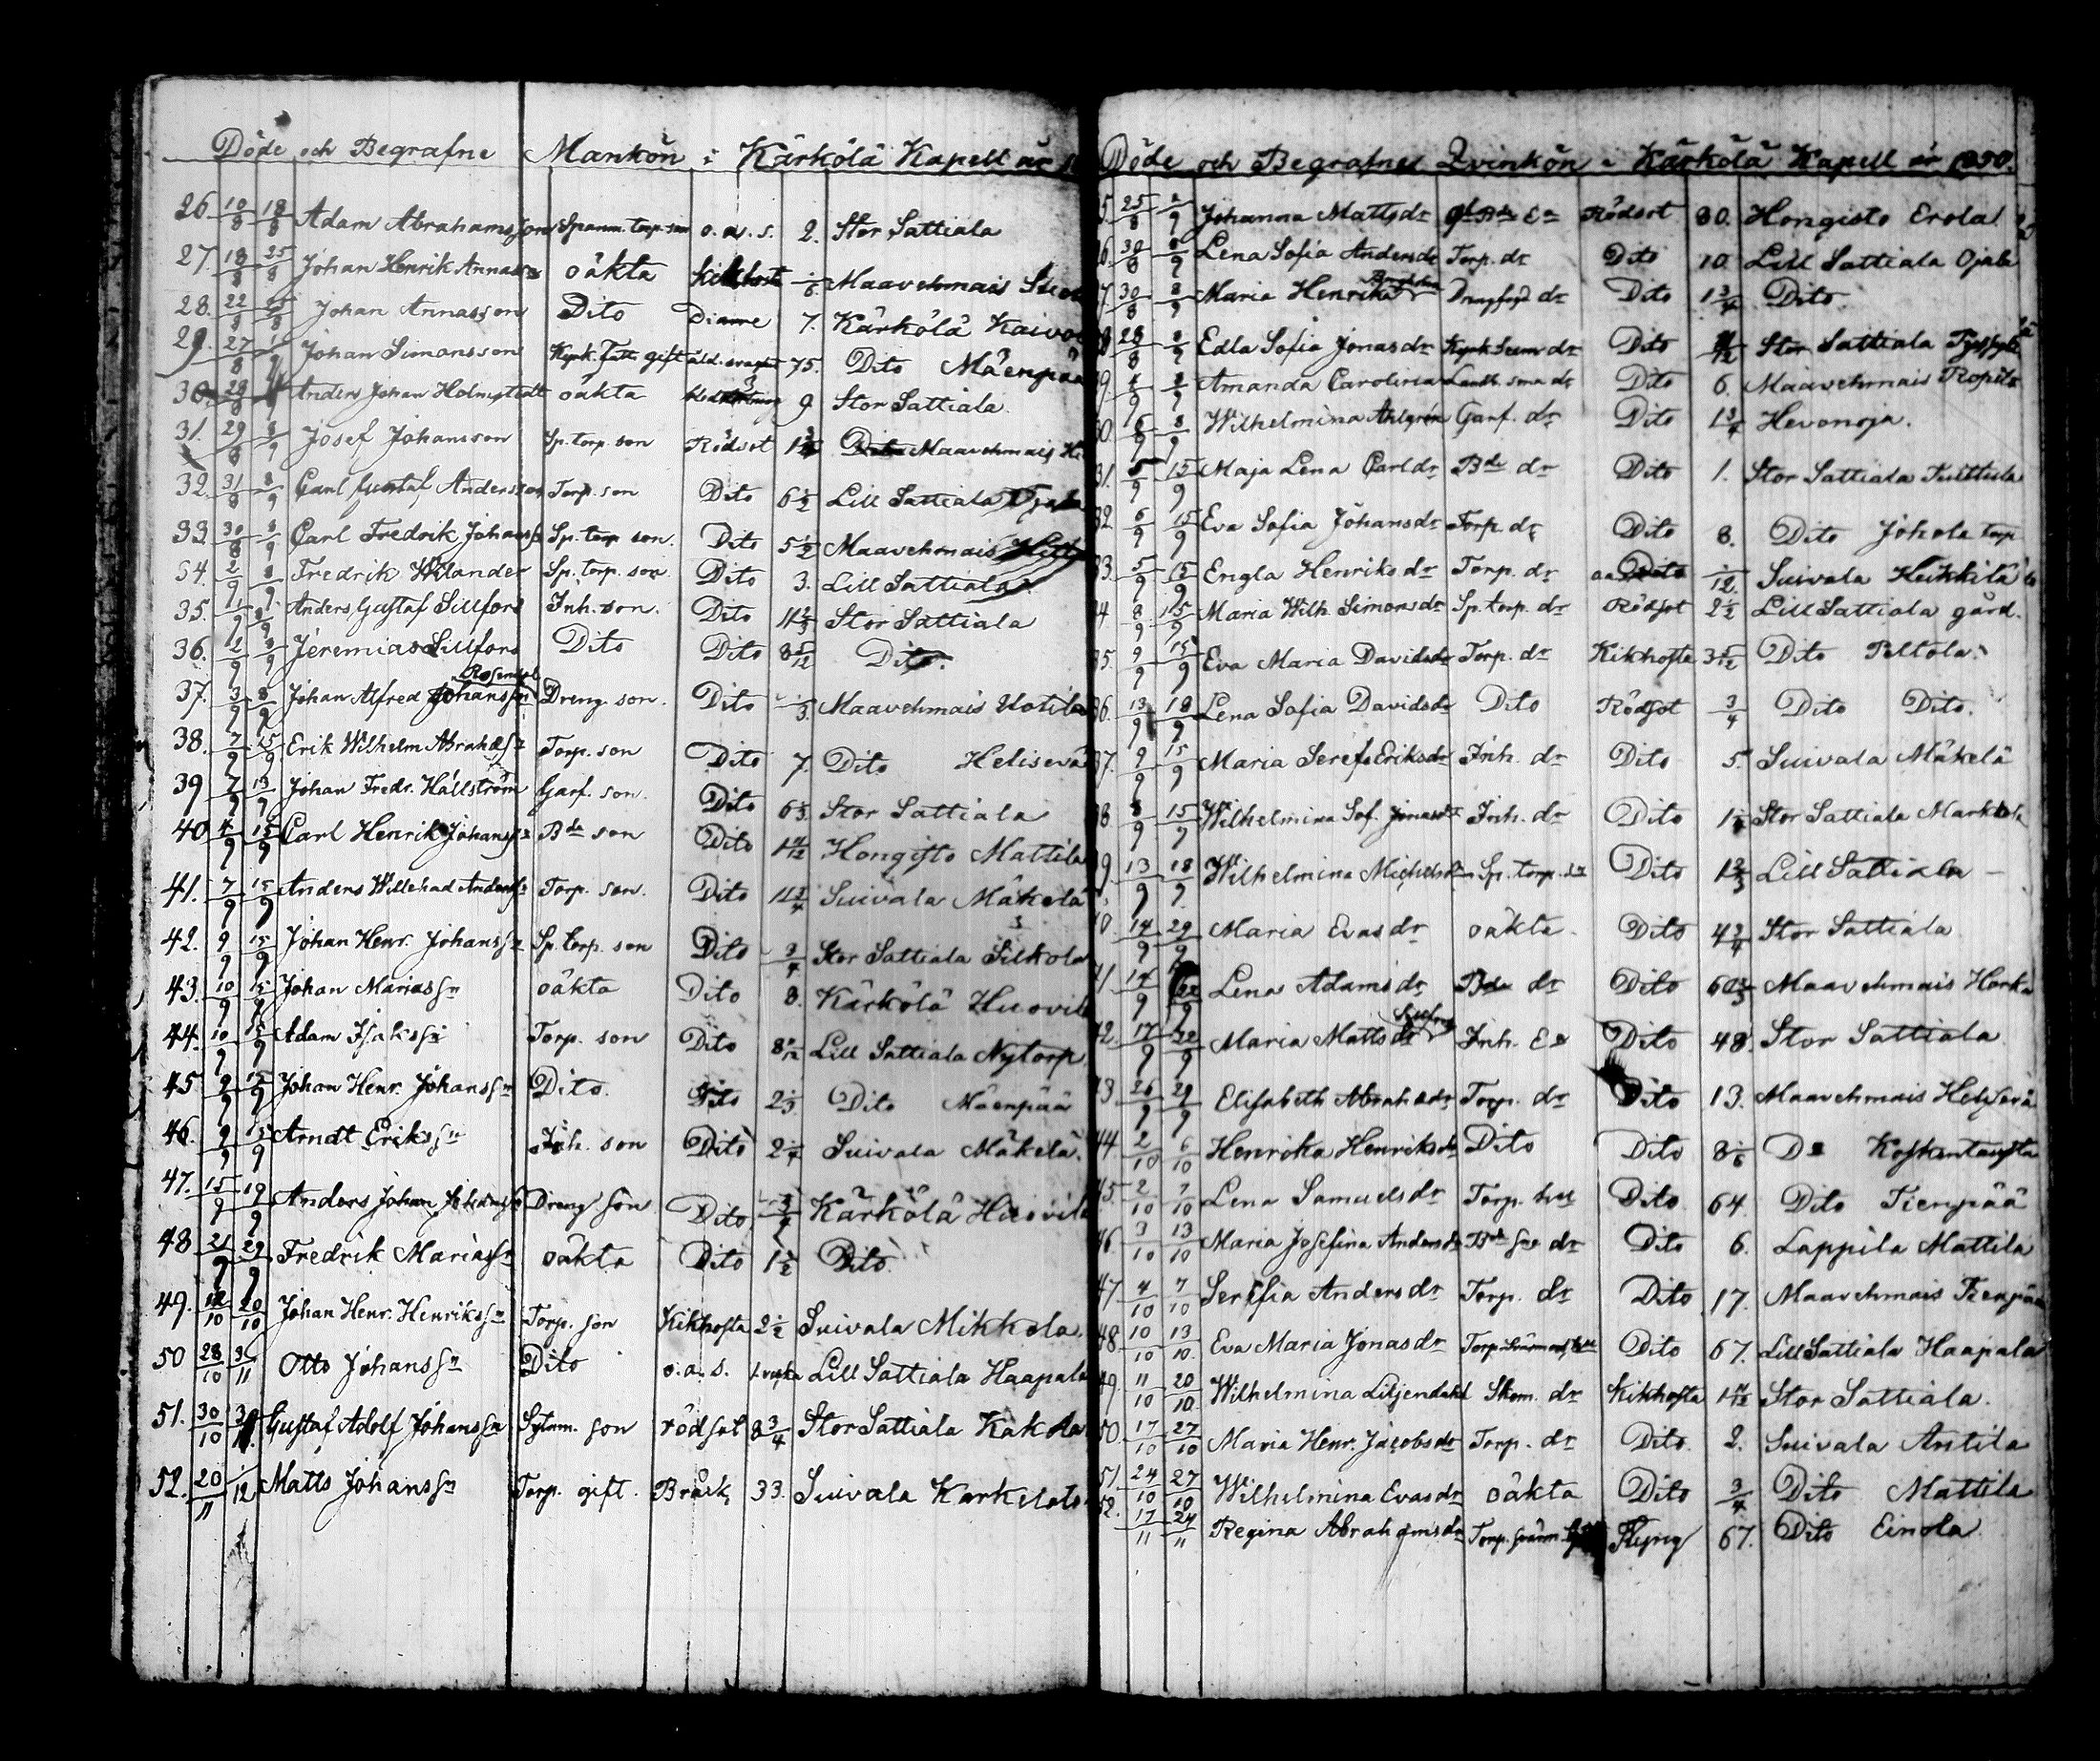 Döde och Begrafne Mankön i Kärkölä Kapell år
26. 10/8 18/8 Adam Abrahamsson Spanm. torp. son o. a. s. 2. Stor Sattiala
27. 18/8 25/8 Johan Henrik Annass oäkta Kikhosta Maavehmais
28. 22/8 25/8 Johan Annasson Dito Diarre 7. Kärkölä Kaivo
29. 27/8 Johan Simonsson Kyrk. Fatt. gift 75. Dito Mäenpää
30. 28/8 Anders Johan Holmstedt oäkta 9 Stor Sattiala
31. 29/8 8/9 Josef Johansson Sp. torp. son Rödsot Maavehmais
32. 31/8 8/9 Carl Gustaf Andersson Torp. son Dito 6 1/2 Lill Sattiala Ojala
33. 30/8 8/9 Carl Fredrik Johanss Sp. torp son. Dito 5 1/2 Maavehmais
34. 2/9 8/9 Fredrik Wilander Sp. torp. son. Dito 3. Lill Sattiala
35. 1/9 8/9 Anders Gustaf Sillfors Inh. son. Dito 11 2/3 Stor Sattiala
36. 2/9 8/9 Jeremias Sillfors Dito Dito 8 5/12 Dito.
37. 3/9 8/9 Johan Alfred Johanss Dreng. son. Dito 1/3. Maavehmais Uotila
38. 7/9 15/9 Erik Wilhelm Abrahss Torp. son Dito 7. Dito Helisevä
39 7/9 13/9 Johan Fredr. Hällström Garf. son. Dito 6 2/3. Stor Sattiala
40 15/9 Carl Henrik Johanss Bde son Dito 1 11/12 Hongisto Mattila
41. 7/9 15/9 Anders Willehad Anderss Torp. son. Dito 11 3/4 Suivala Mäkelä
42. 9/9 15/9 Johan Henr. Johanssn Sp. torp. son Dito 3/4 Stor Sattiala Silkola
43. 10/9 15/9 Johan Mariassn oäkta Dito 8. Kärkölä Huovil
44. 10/9 15/9 Adam Isakssn Torp. son Dito Lill Sattiala Nytorp
45 9/9 15/9 Johan Henr. Johanssn Dito. Dito 2 1/3 Dito Mäenpää
46. 9/9 15/9 Arndt Erikssn Inh. son Dito 2 1/4 Suivala Mäkelä.
47. 15/9 19/9 Anders Johan Johanss Dreng son Dito 3/4 Kärkölä Huovila
48 21/9 29/9 Fredrik Mariassn oäkta Dito 1 1/2 Dito
49. 12/10 20/10 Johan Henr. Henrikssn Torp. son Kikhosta 2 1/2 Suivala Mikkola.
50 28/10 3/11 Otto Johanssn Dito o. a. s. 1. vecka Lill Sattiala Haapala
51. 30/10 3/11. Gustaf Adolf Johanssn Sytnm. son rödsot 8 3/4 Stor Sattiala Kakola
52. 20/11 1/12 Matts Johanssn Torp. gift. Bråck, 33. Suivala Karkelato
Döde och Begrafne Qvinkön i Kärkölä Kapell år 1850.
5. 25/8 2/9 Johanna Mattsdr Ea Rödsot 30. Hongisto Erola
6. 30/8 8/9 Lena Sofia Andersdr Torp. dr Dito 10 Lill Sattiala Ojala
7. 30/8 8/9 Maria Henriks dr Dito 1 3/4 Dito
28/8 8/9 Edla Sofia Jonasdr dr Dito Stor Sattiala
9. 4/9 8/9 Amanda Carolina dr Dito 6. Maavehmais Ropila
30. 6/9 8/9 Wilhelmina Ahlgrén Garf. dr Dito 1 3/4 Hevonoja.
31. 5/9 15/9 Maja Lena Carldr Bde dr Dito 1. Stor Sattiala
32. 6/9 15/9 Eva Sofia Johansdr Torp. dr Dito 8. Dito Jokela torp
33. 5/9 15/9 Engla Henriksdr Torp. dr 1/12. Suivala Heikkilä
34 8/9 15/9 Maria Wilh. Simonsdr Sp. torp. dr Rödsot 2 1/2 Lill Sattiala gård.
35. 9/9 15/9 Eva Maria Davidsdr Torp. dr Kikhosta 3 5/12 Dito Peltola.
36. 13/9 18/9 Lena Sofia Davidsdr Dito Rödsot 3/4 Dito Dito.
37. 9/9 15/9 Maria Seref. Eriksdr Inh. dr Dito 5. Suivala Mäkelä
38. 8/9 15/9 Wilhelmina Sof. Jonasdr Inh. dr Dito Stor Sattiala Markola
39 13/9 18/9 Wilhelmina Michelsdr Sp. torp. dr Dito 1 2/3 Lill Sattiala
40. 14/9 29/9 Maria Evasdr oäkta. Dito 4 3/4 Stor Sattiala
41 14/9 22/9 Lena Adamsdr Bde dr Dito Maavehmais Horka
42. 17/9 22/9 Maria Mattsdr Inh. Ea Dito 48. Stor Sattiala.
43. 26/9 29/9 Elisabeth Abrahdr Torp. dr Dito 13. Maavehmais Helisevä
44. 2/10 6/10 Henrika Henriksdr Dito Dito 8 1/6 Do Koskentausta
45. 2/10 7/10 Lena Samuelsdr Torp. hu Dito 64. Dito Tienpää
46 3/10 13/10 Maria Josefina Andersdr dr Dito 6. Lappila Mattila
47. 4/10 7/10 Serefia Andersdr Torp. dr Dito 17. Maavehmais Tienpää
48. 10/10 13/10. Eva Maria Jonasdr Torp. Dito 67. Lill Sattiala Haapala
49. 11/10 20/10. Wilhelmina Liljendahl Skom. dr Kikhosta 1 11/12 Stor Sattiala.
50. 17/10 27/10 Maria Henr. Jacobsdr Torp. dr Dito. 2. Suivala Antila
51. 24/10 27/10 Wilhelmina Evasdr oäkta Dito 3/4 Dito Mattila
52. 17/11 24/11 Regina Abrahamsdr Torp. Flyng 67. Dito Einola